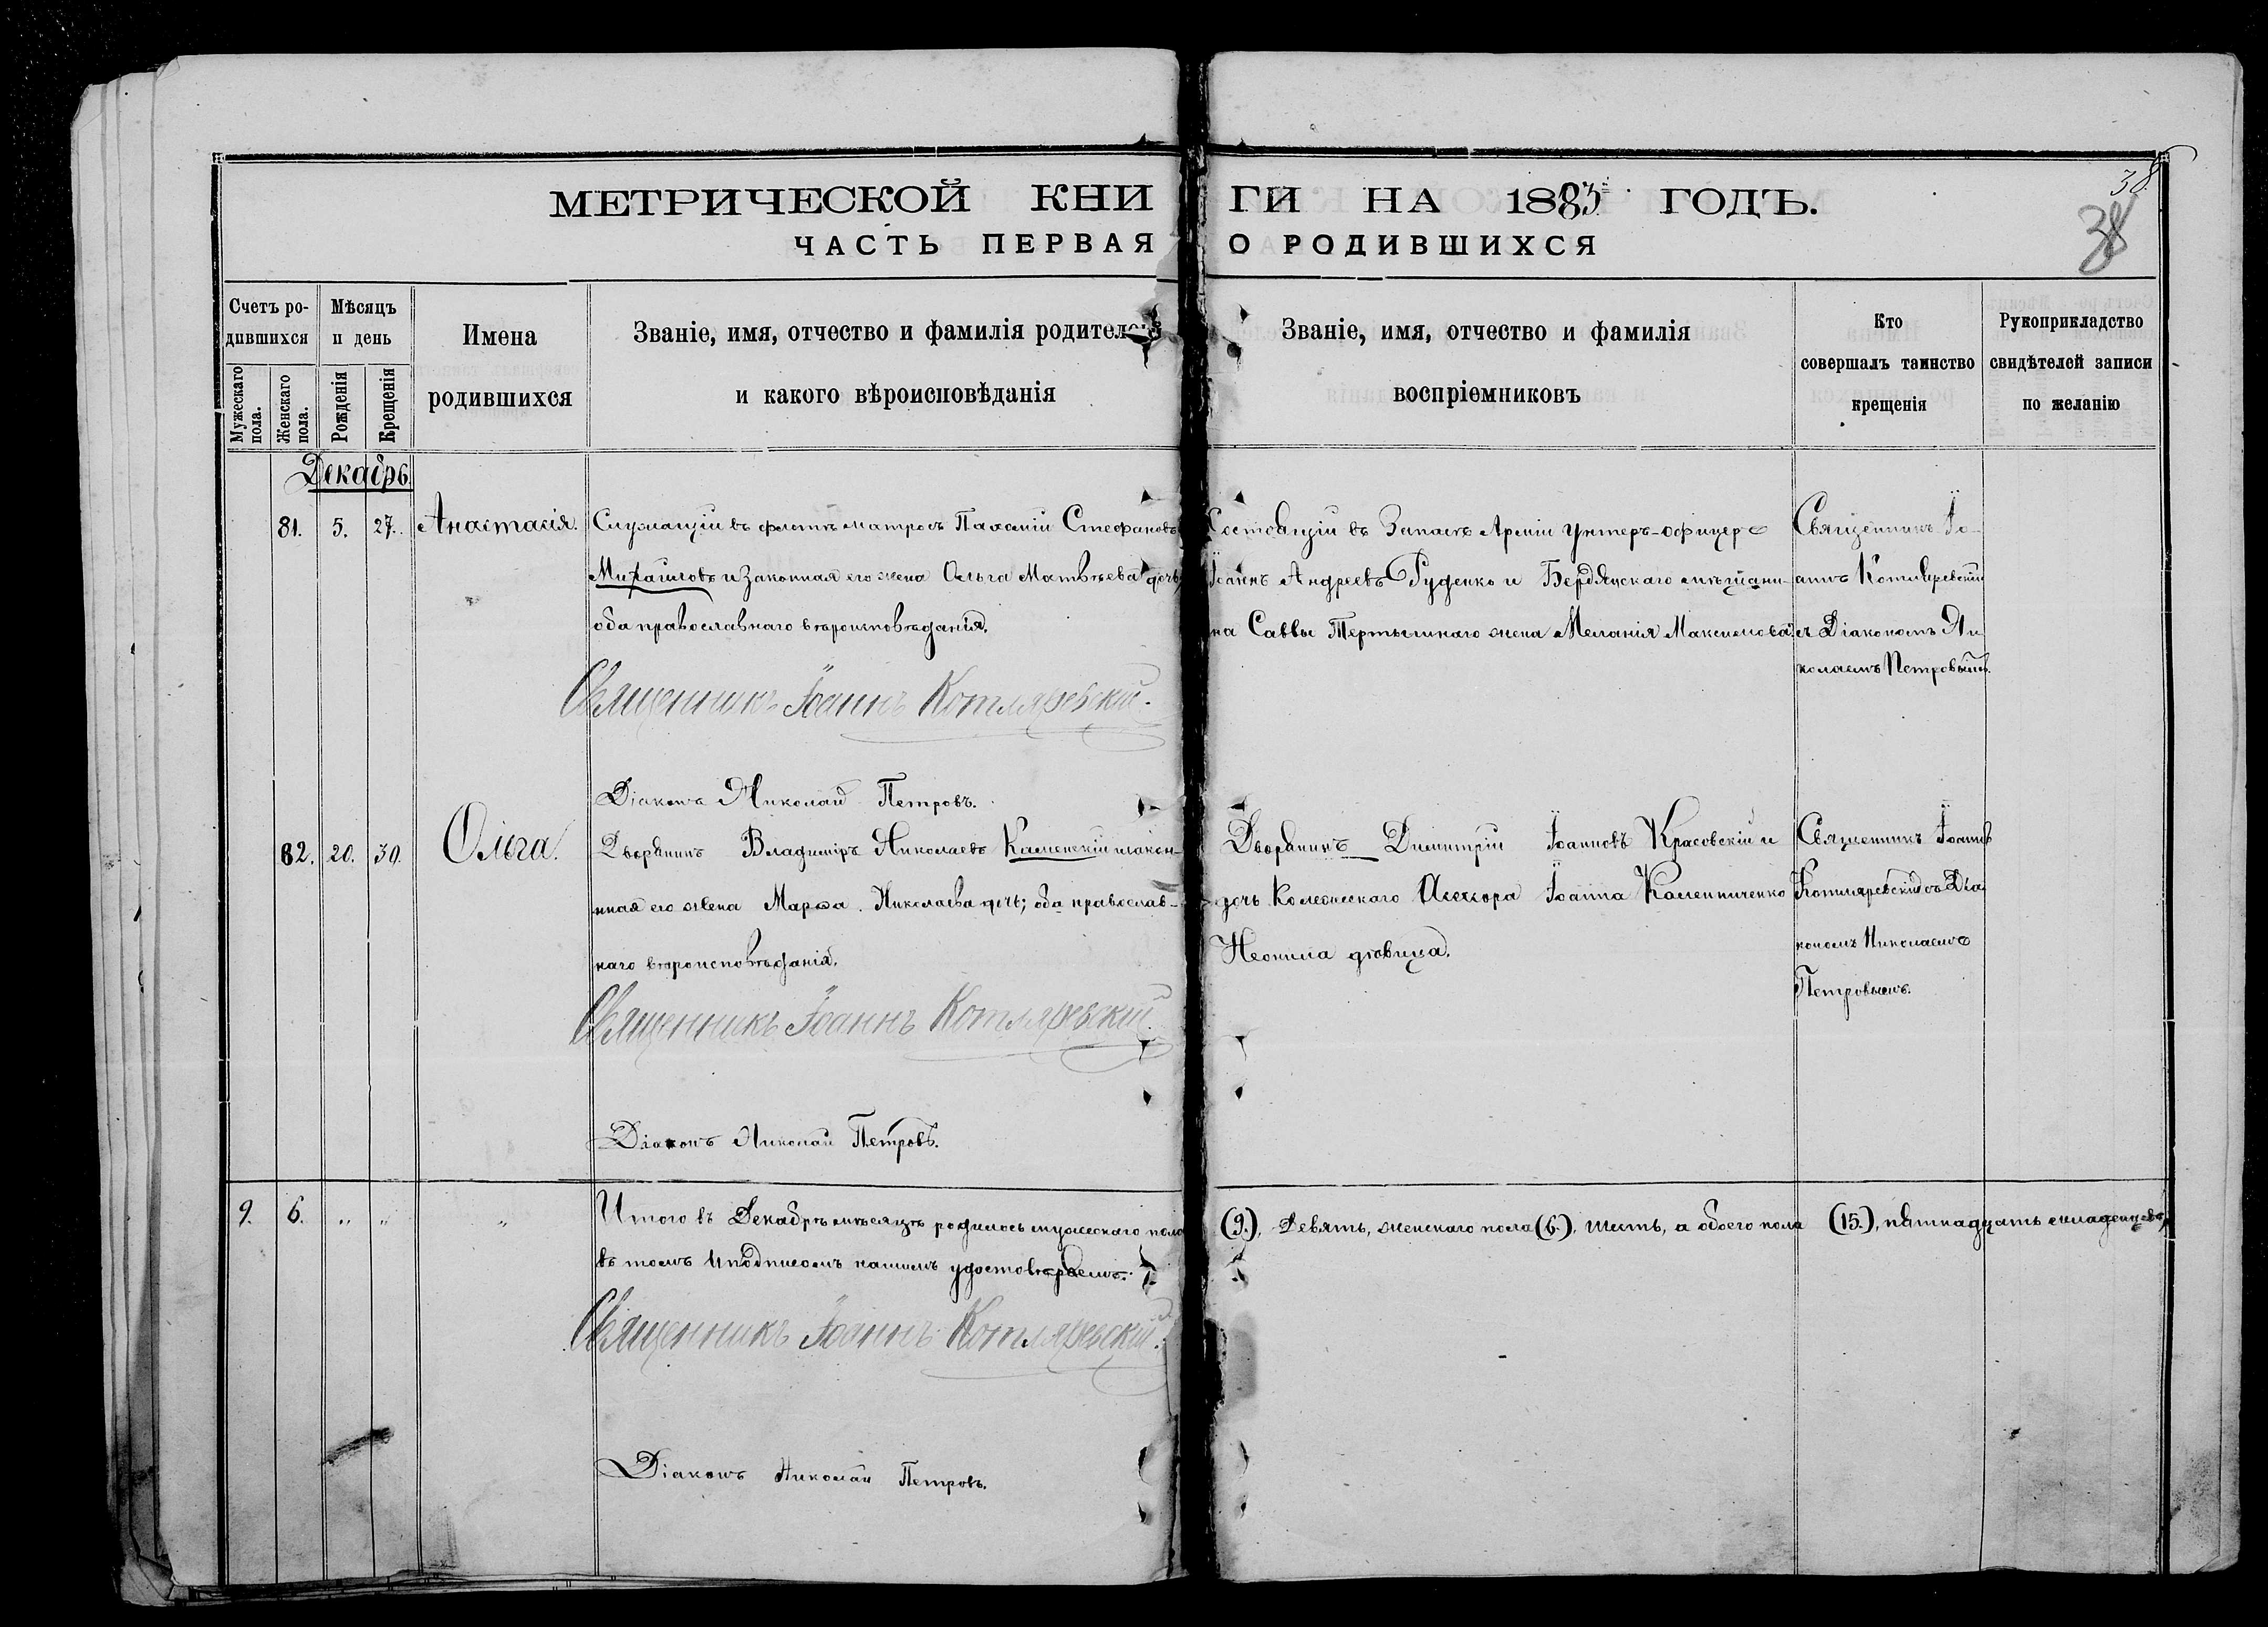 МЕТРИЧЕСКОЙ КНИГИ НА 1883 ГОДЪ.
ЧАСТЬ ПЕРВАЯ О РОДИВШИХСЯ
38
38
Счетъ родившихся
Мужескаго пола.
Женскаго пола.
Мѣсяцъ и день
Рожденія
Крещенія
Имена родившихся
Званіе, имя, отчество и фамилія родителей
и какого вѣроисповѣданія
Званіе, имя, отчество и фамилія
воспріемниковъ
Кто
совершалъ таинство
крещенія
Рукоприкладство
свидѣтелей записи
по желанію
Декабрь
81. 5. 27. Анастасія.
Служащій въ флотѣ матросъ Пахомій Стефановъ
и законная его жена Ольга Матвѣева дочь,
оба православнаго вѣроисповѣданія.
Священникъ Іоаннъ Котляревскій.
Діаконъ Николай Петровъ.
Состоящій въ Запасѣ Арміи унтеръ-офицеръ
Іоаннъ Андреевъ Руденко и Бердянскаго мѣщани-
на Саввы Тертышнаго жена Меланія Максимова.
Священникъ Іо-
аннъ Котляревскій
съ Діакономъ Ни-
колаемъ Петровымъ.
82. 20. 30. Ольга.
Дворянинъ Владиміръ Николаевъ Каменскій и закон-
ная его жена Марѳа Николаева дочь; оба православ-
наго вѣроисповѣданія.
Священникъ Іоаннъ Котляревскій.
Діаконъ Николай Петровъ.
Дворянинъ Димитрій Іоанновъ Красовскій и
дочь Колежскаго Асессора Іоанна Каменниченко
Неонила дѣвица.
Священникъ Іоаннъ
Котляревскій съ Діа-
кономъ Николаемъ
Петровымъ.
9. 6. „ „ „
Итого въ Декабрѣ мѣсяцѣ родилось мужескаго пола (9.), девять, женскаго пола (6.), шесть, а обоего пола (15.), пятнадцать младенцевъ,
въ томъ и подписомъ нашимъ удостовѣряемъ.
Священникъ Іоаннъ Котляревскій.
Діаконъ Николай Петровъ.